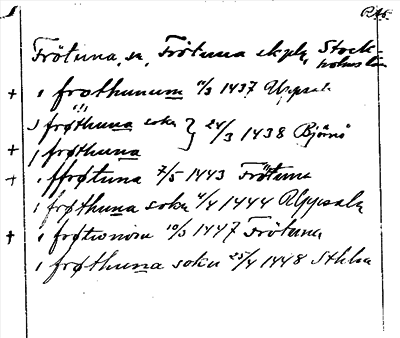 RA5.
Frötuna, sn, Frötuna skpl, Stock-
holms län
+ i frothunum 11/3 1437 Uppsala
j frøthuna soku } 24/3 1438 Björnö
+ j frøthuna
+ i ffrøtuna 7/5 1443 Frötuna
i frøthuna soku 4/4 1444 Uppsala
+ i frøtionom 10/3 1447 Frötuna
i frøthuna soku 25/4 1448 Sthlm